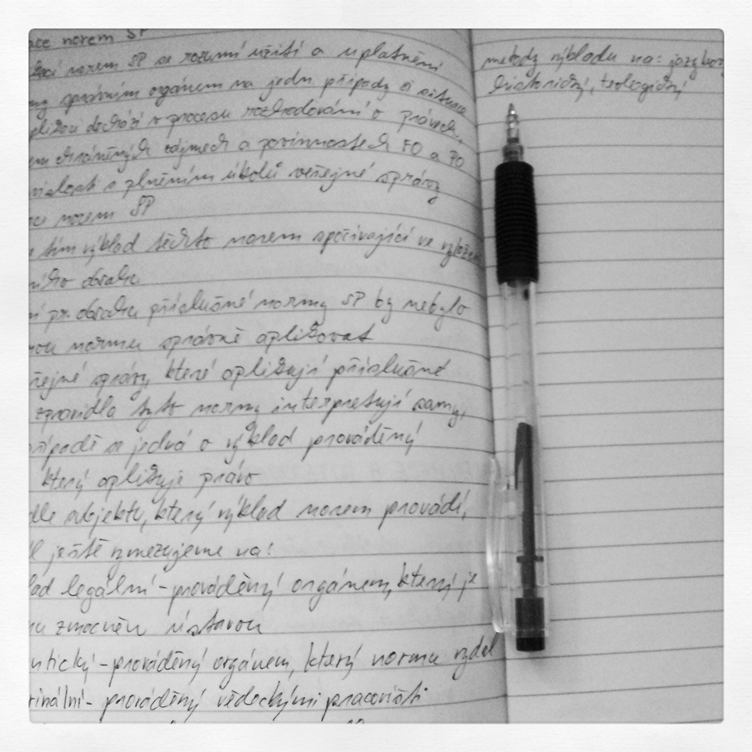 norem SP
norem SP se rozumí užití a uplatnění
správním orgánem na jedn případy a situace
dochází v procesu rozhodování o právech,
chráněných zájmech a povinnostech FO a PO
s plněním úkolů veřejné správy
norem SP
tím výklad těchto norem spočívající ve
obsahu
obsahu příslušné normy SP by nebylo
normu správně aplikovat
správy které aplikují příslušné
zpravidla tyto normy interpretují samy,
se jedná o výklad prováděný
který aplikuje právo
dle subjektu, který výklad norem provádí,
ještě vymezujeme na:
legální - prováděný orgánem, který je
zmocněn ústavou
prováděný orgánem, který normu vydal
prováděný vědeckými pracovišti
metody výkladu na: jazykový
historický, teologický